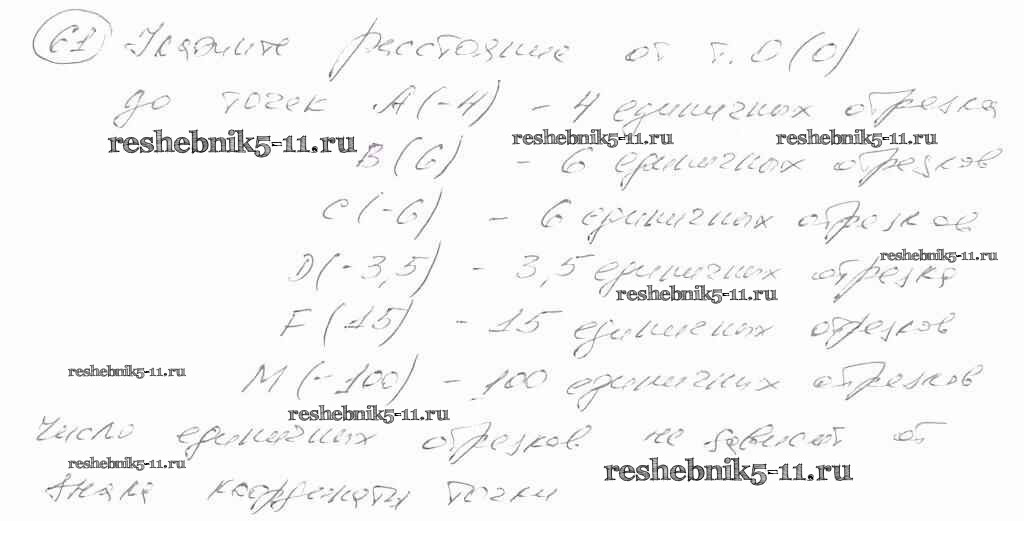 61 Укажите расстояние от т. О(0)
до точек А(-4) - 4 единичных отрезка
reshebnik5-11.ru reshebnik5-11.ru reshebnik5-11.ru
В(6) - 6 единичных отрезков
С(-6) - 6 единичных отрезков
reshebnik5-11.ru
D(-3,5) - 3,5 единичных отрезка
reshebnik5-11.ru
F(15) - 15 единичных отрезков
reshebnik5-11.ru
М(-100) - 100 единичных отрезков
reshebnik5-11.ru
Число единичных отрезков не зависит от
reshebnik5-11.ru reshebnik5-11.ru
знака координаты точки